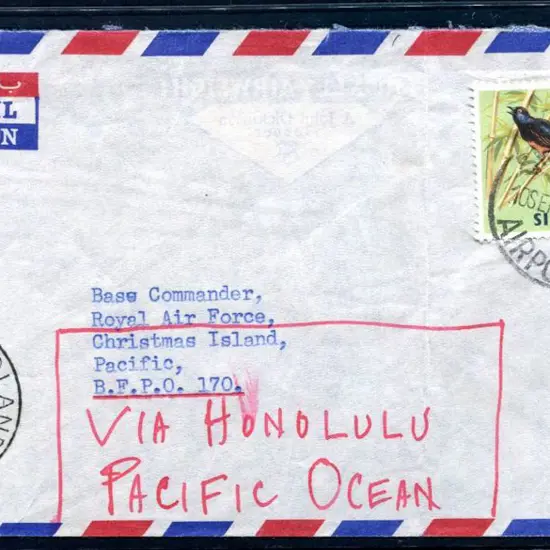 Base Commander,
Royal Air Force,
Christmas Island,
Pacific,
B.F.P.O. 170.
VIA HONOLULU
PACIFIC OCEAN
SI
10SE
AIRPO
LAN
IL
ON